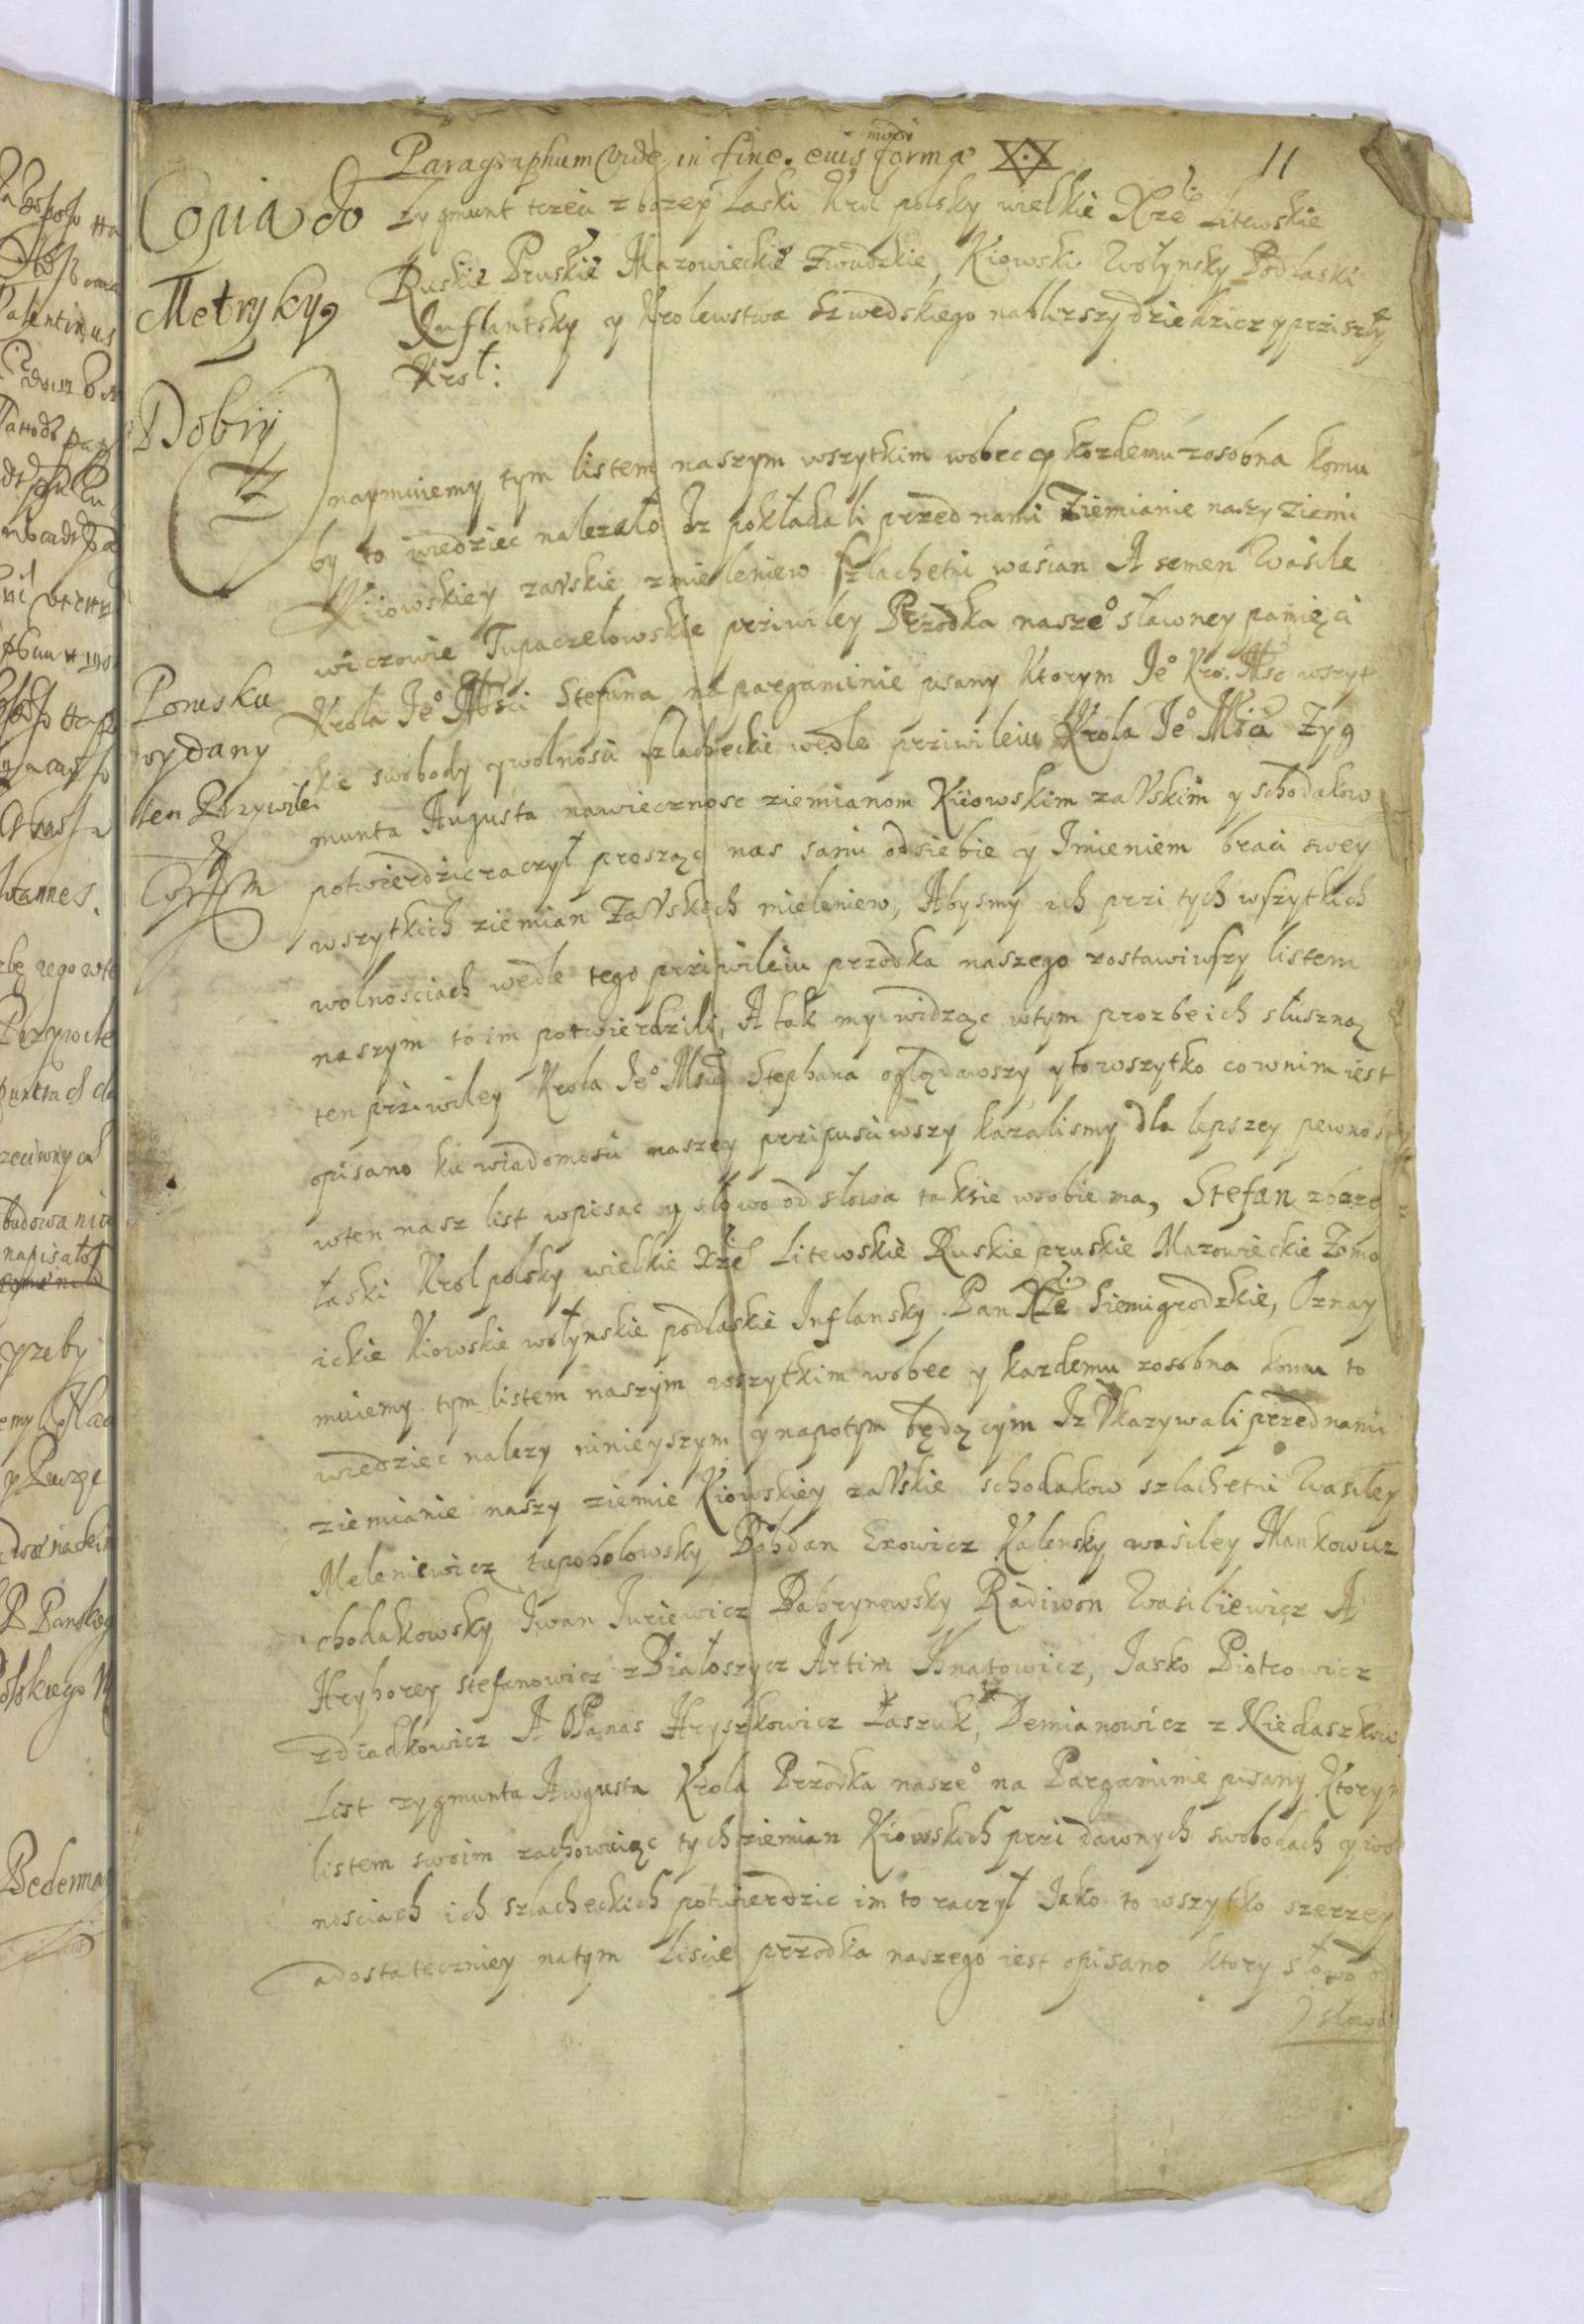 Paragraphum vide in fine. euis modi formæ
11
Copia do
Metryky
Zygmunt trzeci z bozey Laski Krol polsky wielkie Xże Litewskie
Ruskie Pruskie Mazowieckie Zmudzkie, Kiowski Wołynsky Podlaski
Inflantsky y Krolewstwa Szwedskiego nablizszy dziedzicz y prziszły
Krol:
Dobry
Oznaymuiemy tym listem naszym wszytkim wobec y kozdemu zosobna komu
by to wiedziec nalezało Iz pokładali przed nami Ziemianie naszy Ziemi
Kiiowskiey zaVskie z mieleniew szlachetni wasian A semen Wasile
wiczowie Tupaczelowskie prziwiley Przodka nasze° sławney pamięci
Porusku
wydany
ten Przywilei
Krola Je° Mści Stefana na pargaminie pisany Ktorym Je° Kro. Msc wszyt
kie swobody y wolnosci szlacheckie wedle prziwileiu Krola Je° Mści Zyg
munta Augusta nawiecznosc ziemianom Kiiowskim zaVskim y schodakow
potwierdzic raczył prosząc nas sami odsiebie y Imieniem braci swey
wszytkich ziemian ZaVskich mieleniew, Abysmy ich przi tych wszytkich
wolnosciach wedle tego prziwileiu przodka naszego zostawiwszy listem
naszym to im potwierdzili, A tak my widząc wtym prozbe ich słuszną
ten prziwiley Krola Je° Mści Stephana oglądawszy y to wszytko cownim iest
opisano ku wiadomosci naszey prziposciwszy kazalismy dla lepszey pewnosci
wten nasz list wpisac y słowo od słowa tak sie wsobie ma, Stefan z boze
łaski Krol polsky wielkie Xże Litewskie Ruskie pruskie Mazowieckie Zomo
ickie Kiowskie wołynskie podlaskie Inflansky Pan Xże Siemigrodzkie, Oznay
muiemy tym listem naszym wszytkim wobec y kazdemu zosobna komu to
wiedziec nalezy ninieyszym y napotym będącym Iz Vkazywali przednami
ziemianie naszy ziemie Kiowskiey zaVskie schodakow szlachetni Wasiley
Meleniewicz tupoholowsky Bohdan Erowicz Kalensky wasiley Mankowicz
chodakowsky Iwan Iuriewicz Dabrynowsky Radiwon Wasiliewicz A
Hryhorey Stefanowicz z Białoszycz Artim Ihnatowicz, Iasko Piotrowicz
z diadkowicz A OPanas Hryszkowicz Łaszuk, Demianowicz z Niedaszkow
List zygmunta Augusta Krola Przodka nasze° na Pargaminie pisany Ktorym
listem swoim zachowuiąc tych ziemian Kiowskich przi dawnych swobodach y wol
nosciach ich szlacheckich potwierdzic im to raczył Iako to wszytko szerzey
a dostateczniey natym liscie przodka naszego iest opisano ktory słowo od
słowa